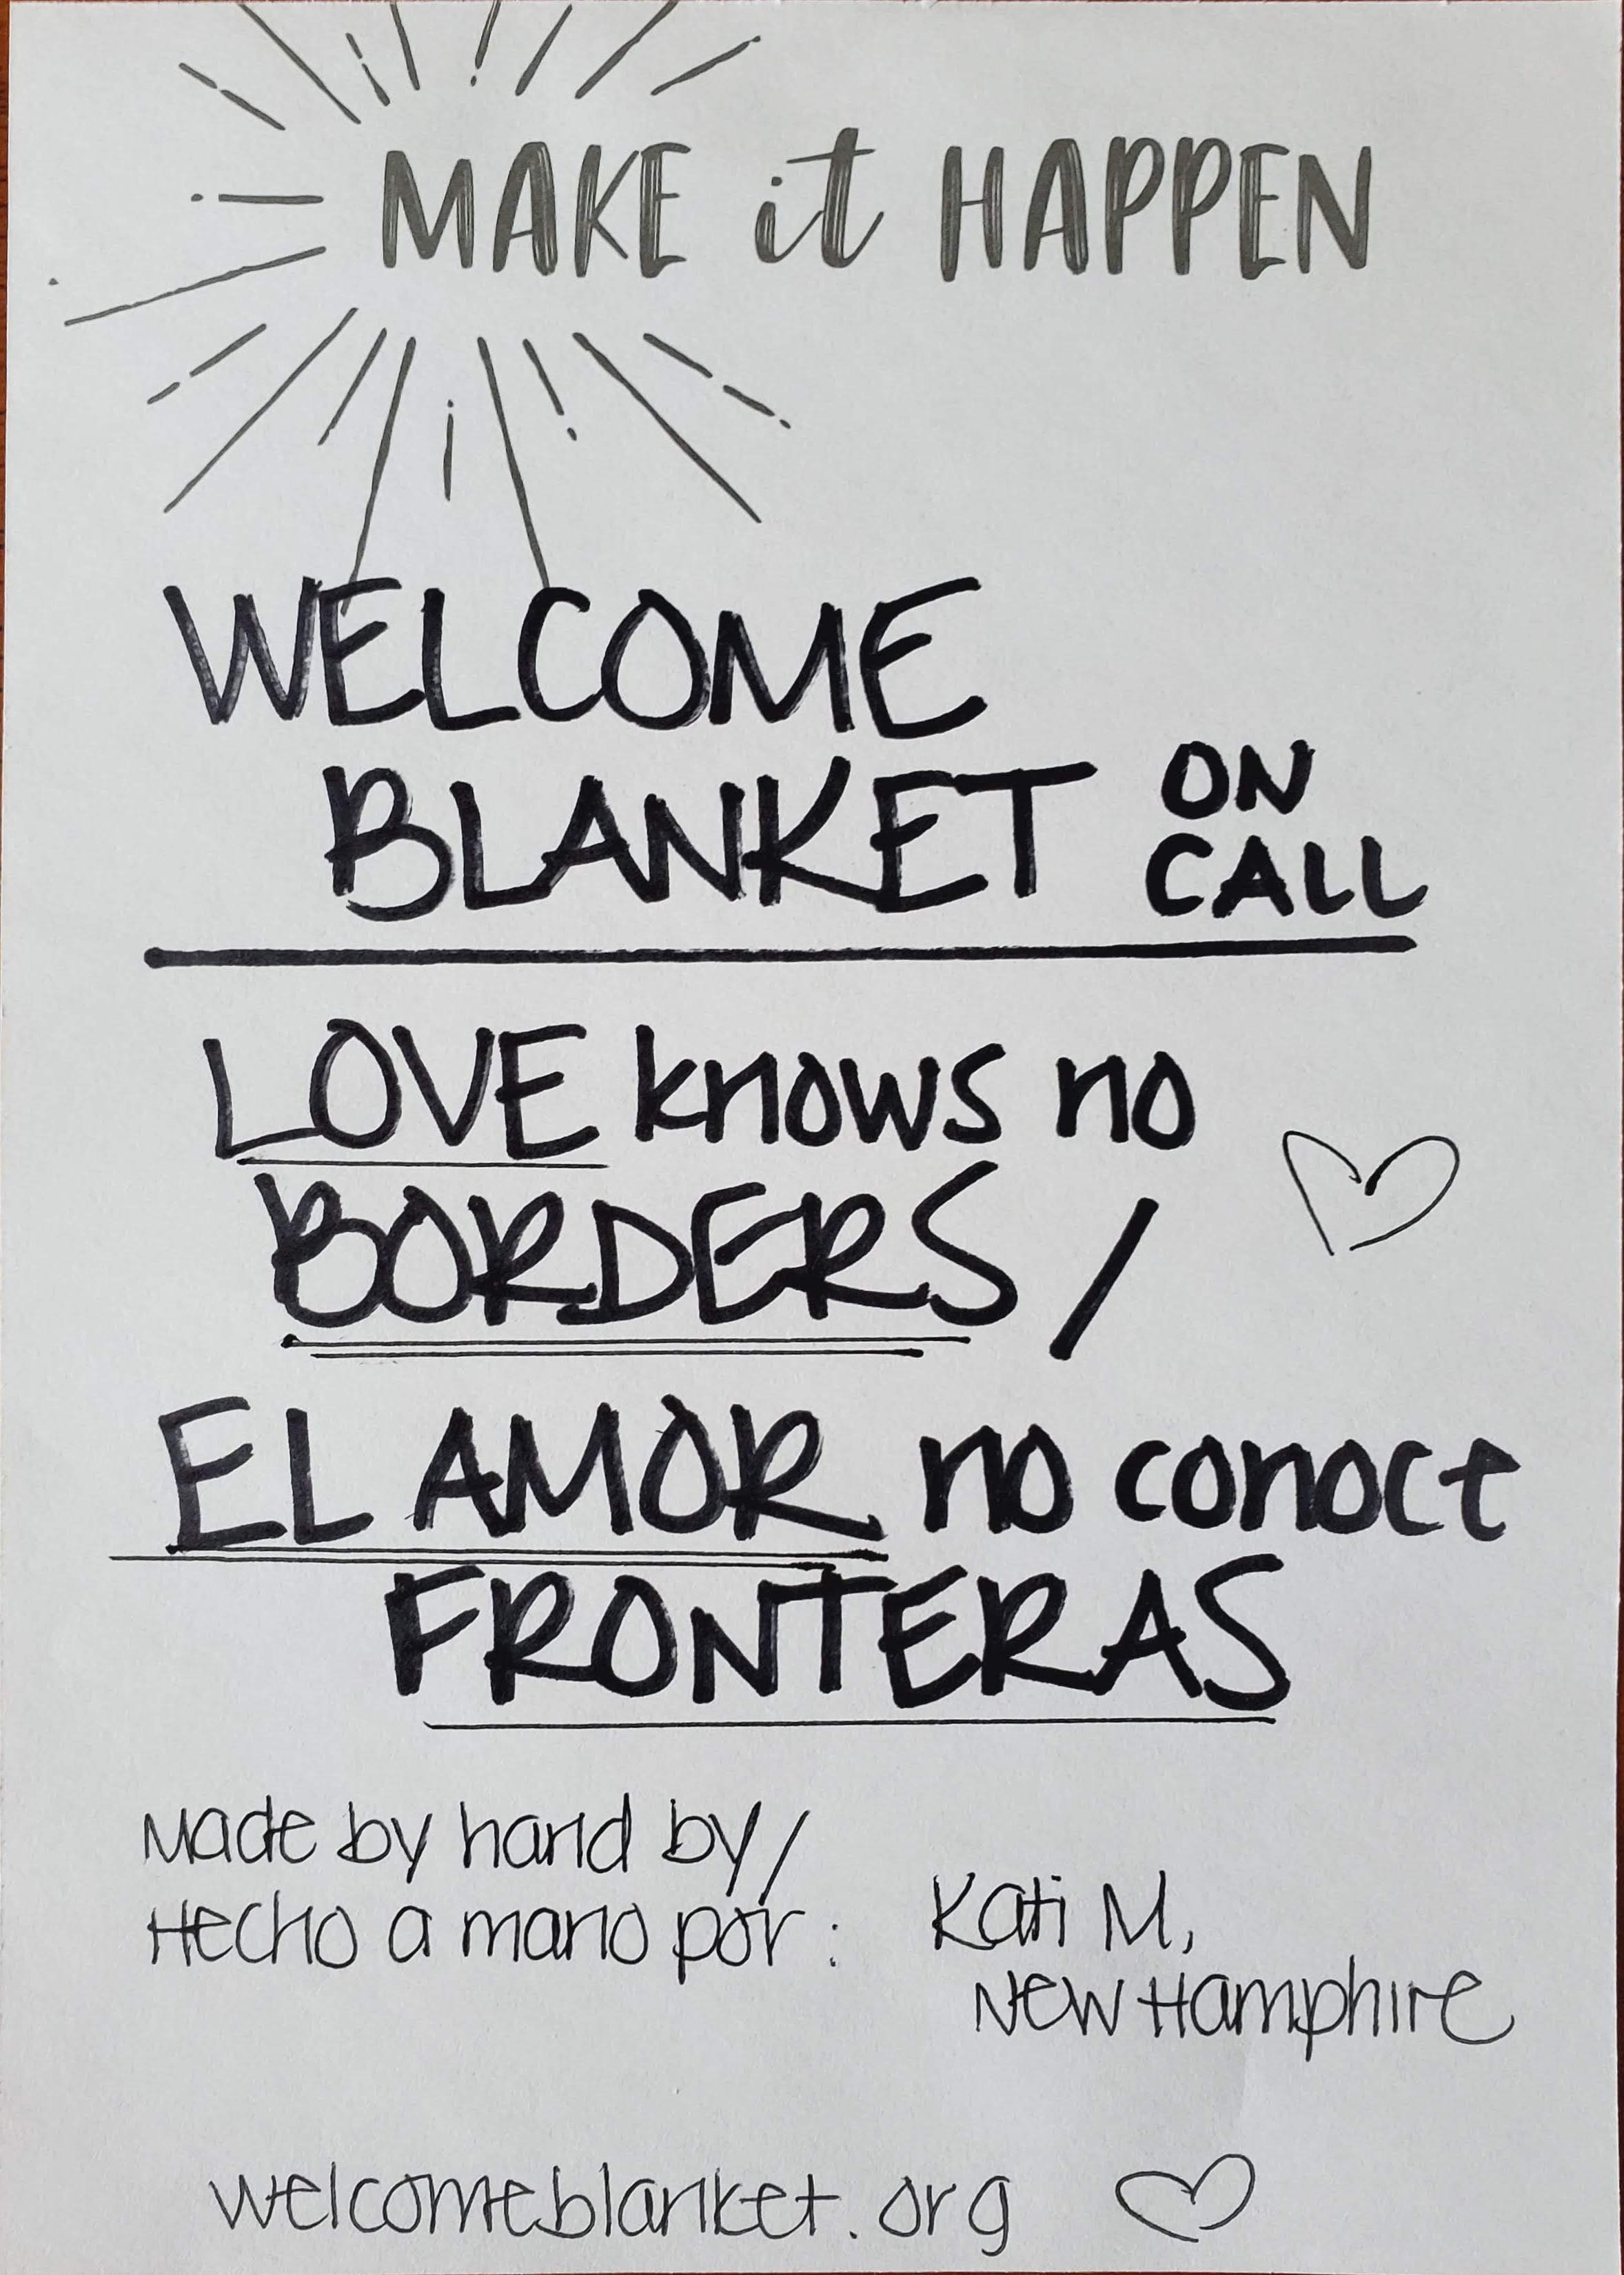 MAKE it HAPPEN
WELCOME
BLANKET ON CALL
LOVE knows no
BORDERS /
EL AMOR no conoce
FRONTERAS
Made by hand by/
Hecho a mano por: Kati M,
New Hamphire
welcomeblanket.org